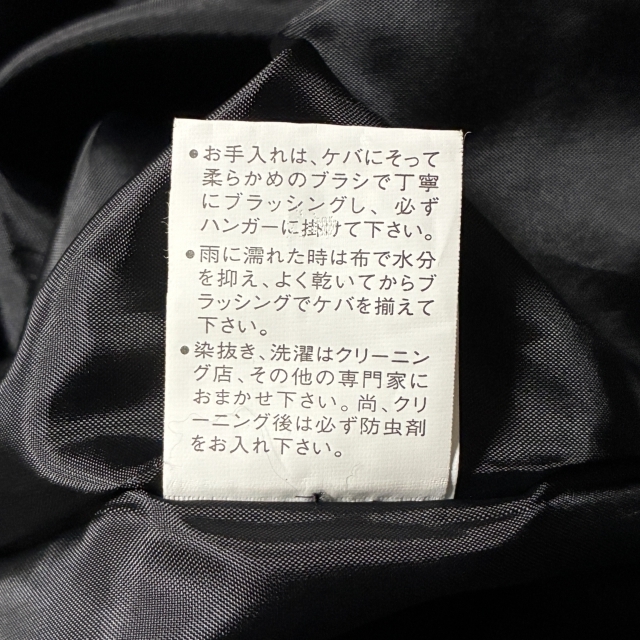 ●お手入れは、ケバにそって
柔らかめのブラシで丁寧
にブラッシングし、必ず
ハンガーに掛けて下さい。
●雨に濡れた時は布で水分
を抑え、よく乾いてからブ
ラッシングでケバを揃えて
下さい。
●染抜き、洗濯はクリーニン
グ店、その他の専門家に
おまかせ下さい。尚、クリ
ーニング後は必ず防虫剤
をお入れ下さい。